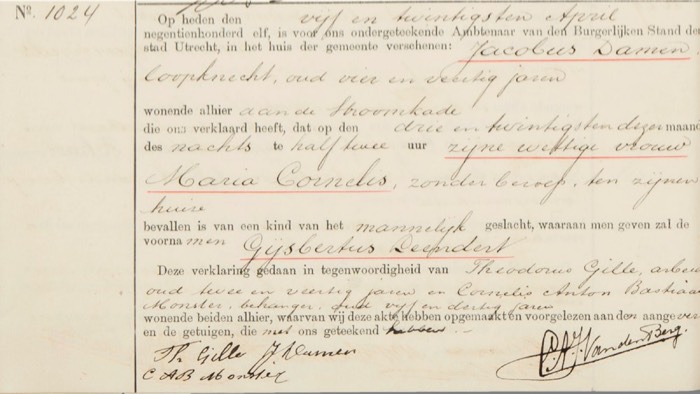 Nº. 1024
Op heden den vijf en twintigsten April
negentienhonderd elf, is voor ons ondergeteekende Ambtenaar van den Burgerlijken Stand der
stad Utrecht, in het huis der gemeente verschenen: Jacobus Damen,
loopknecht, oud vier en veertig jaren
wonende alhier aan de Stroomkade
die ons verklaard heeft, dat op den drie en twintigsten dezer maand
des nachts te half twee uur zijne wettige vrouw
Maria Cornelis, zonder beroep, ten zijnen
huize
bevallen is van een kind van het mannelijk geslacht, waaraan men geven zal de
voornamen Gijsbertus Leendert
Deze verklaring gedaan in tegenwoordigheid van Theodorus Gille, arbei
oud twee en veertig jaren en Cornelis Anton Bastiaan
Monster, behanger, oud vijf en dertig jaren
wonende beiden alhier, waarvan wij deze akte hebben opgemaakt en voorgelezen aan den aangever
en de getuigen, die met ons geteekend hebben.
Th Gille J Damen
C A B Monster
C.A.J. van den Berg.